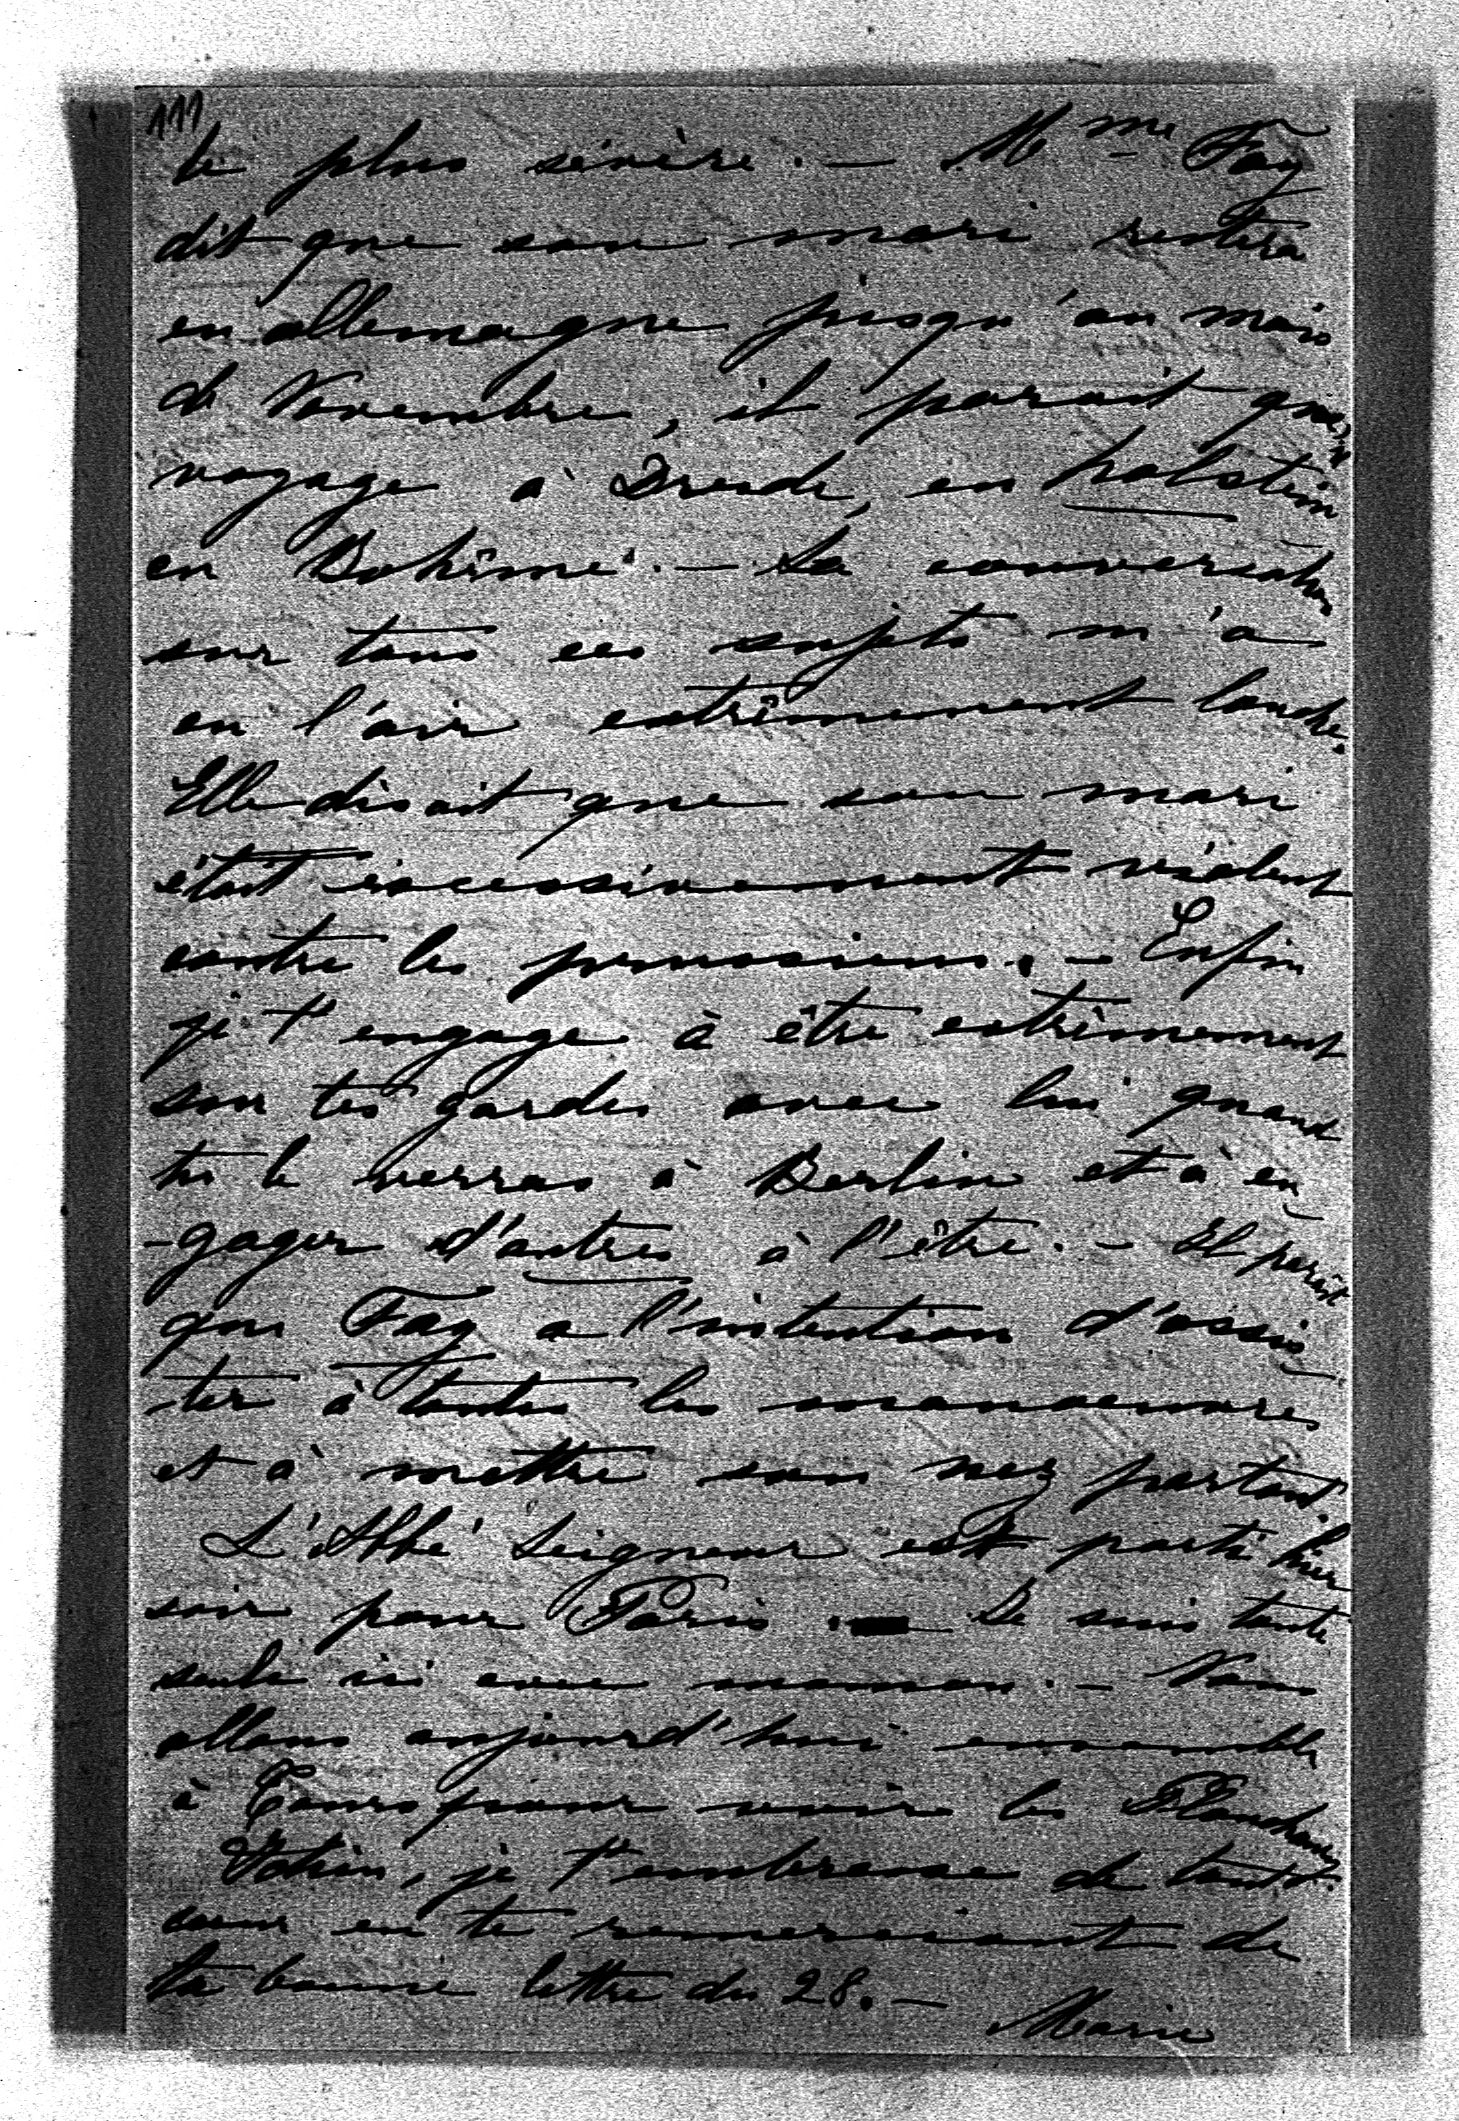 111
le plus sévère. — Mme Fay
dit que son mari restera
en allemagne jusqu'au mois
de Novembre, il parait qu'il
voyage à Dresde, en holstein
en Bohême. — La conversation
sur tous ces sujets m'a
eu l'air extrêmement louche.
Elle disait que son mari
était excessivement violent
contre les prussiens. — Enfin
je t'engage à être extrêmement
sur tes gardes avec lui quand
tu le verras à Berlin et à en
-gager d'autres à l'être. — Il parait
que Fay a l'intention d'assis
ter à toutes les manoeuvres
et à mettre son nez partout.
L'Abbé Seigneur est parti hier
soir pour Paris. — Je suis toute
seule ici avec maman. — Nous
allons aujourd'hui ensemble
à Tours pour voir les
je t'embrasse de tout
coeur en te remerciant de
ta bonne lettre du 28. —
Marie